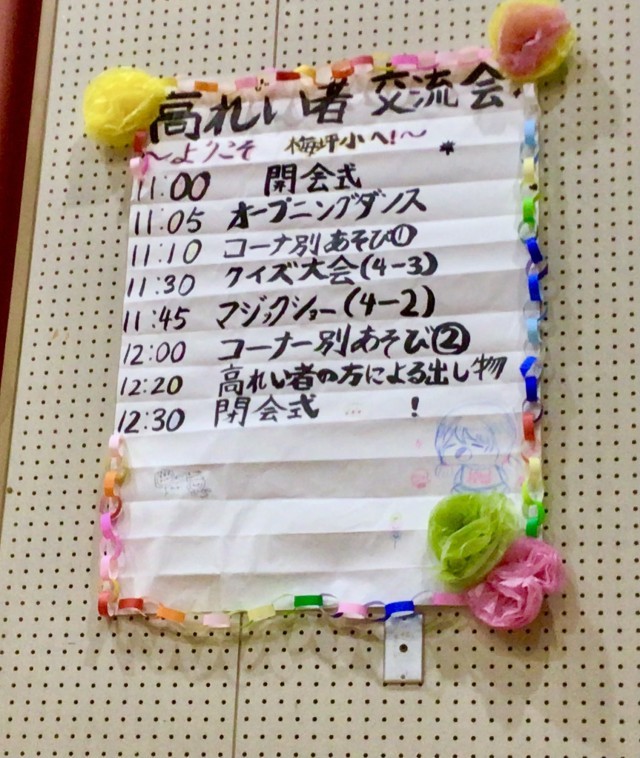 高れい者 交流会
～ようこそ 梅坪小へ!～
11:00 開会式
11:05 オープニングダンス
11:10 コーナ別あそび①
11:30 クイズ大会(4-3)
11:45 マジックショー(4-2)
12:00 コーナー別あそび②
12:20 高れい者の方による出し物
12:30 閉会式 … !